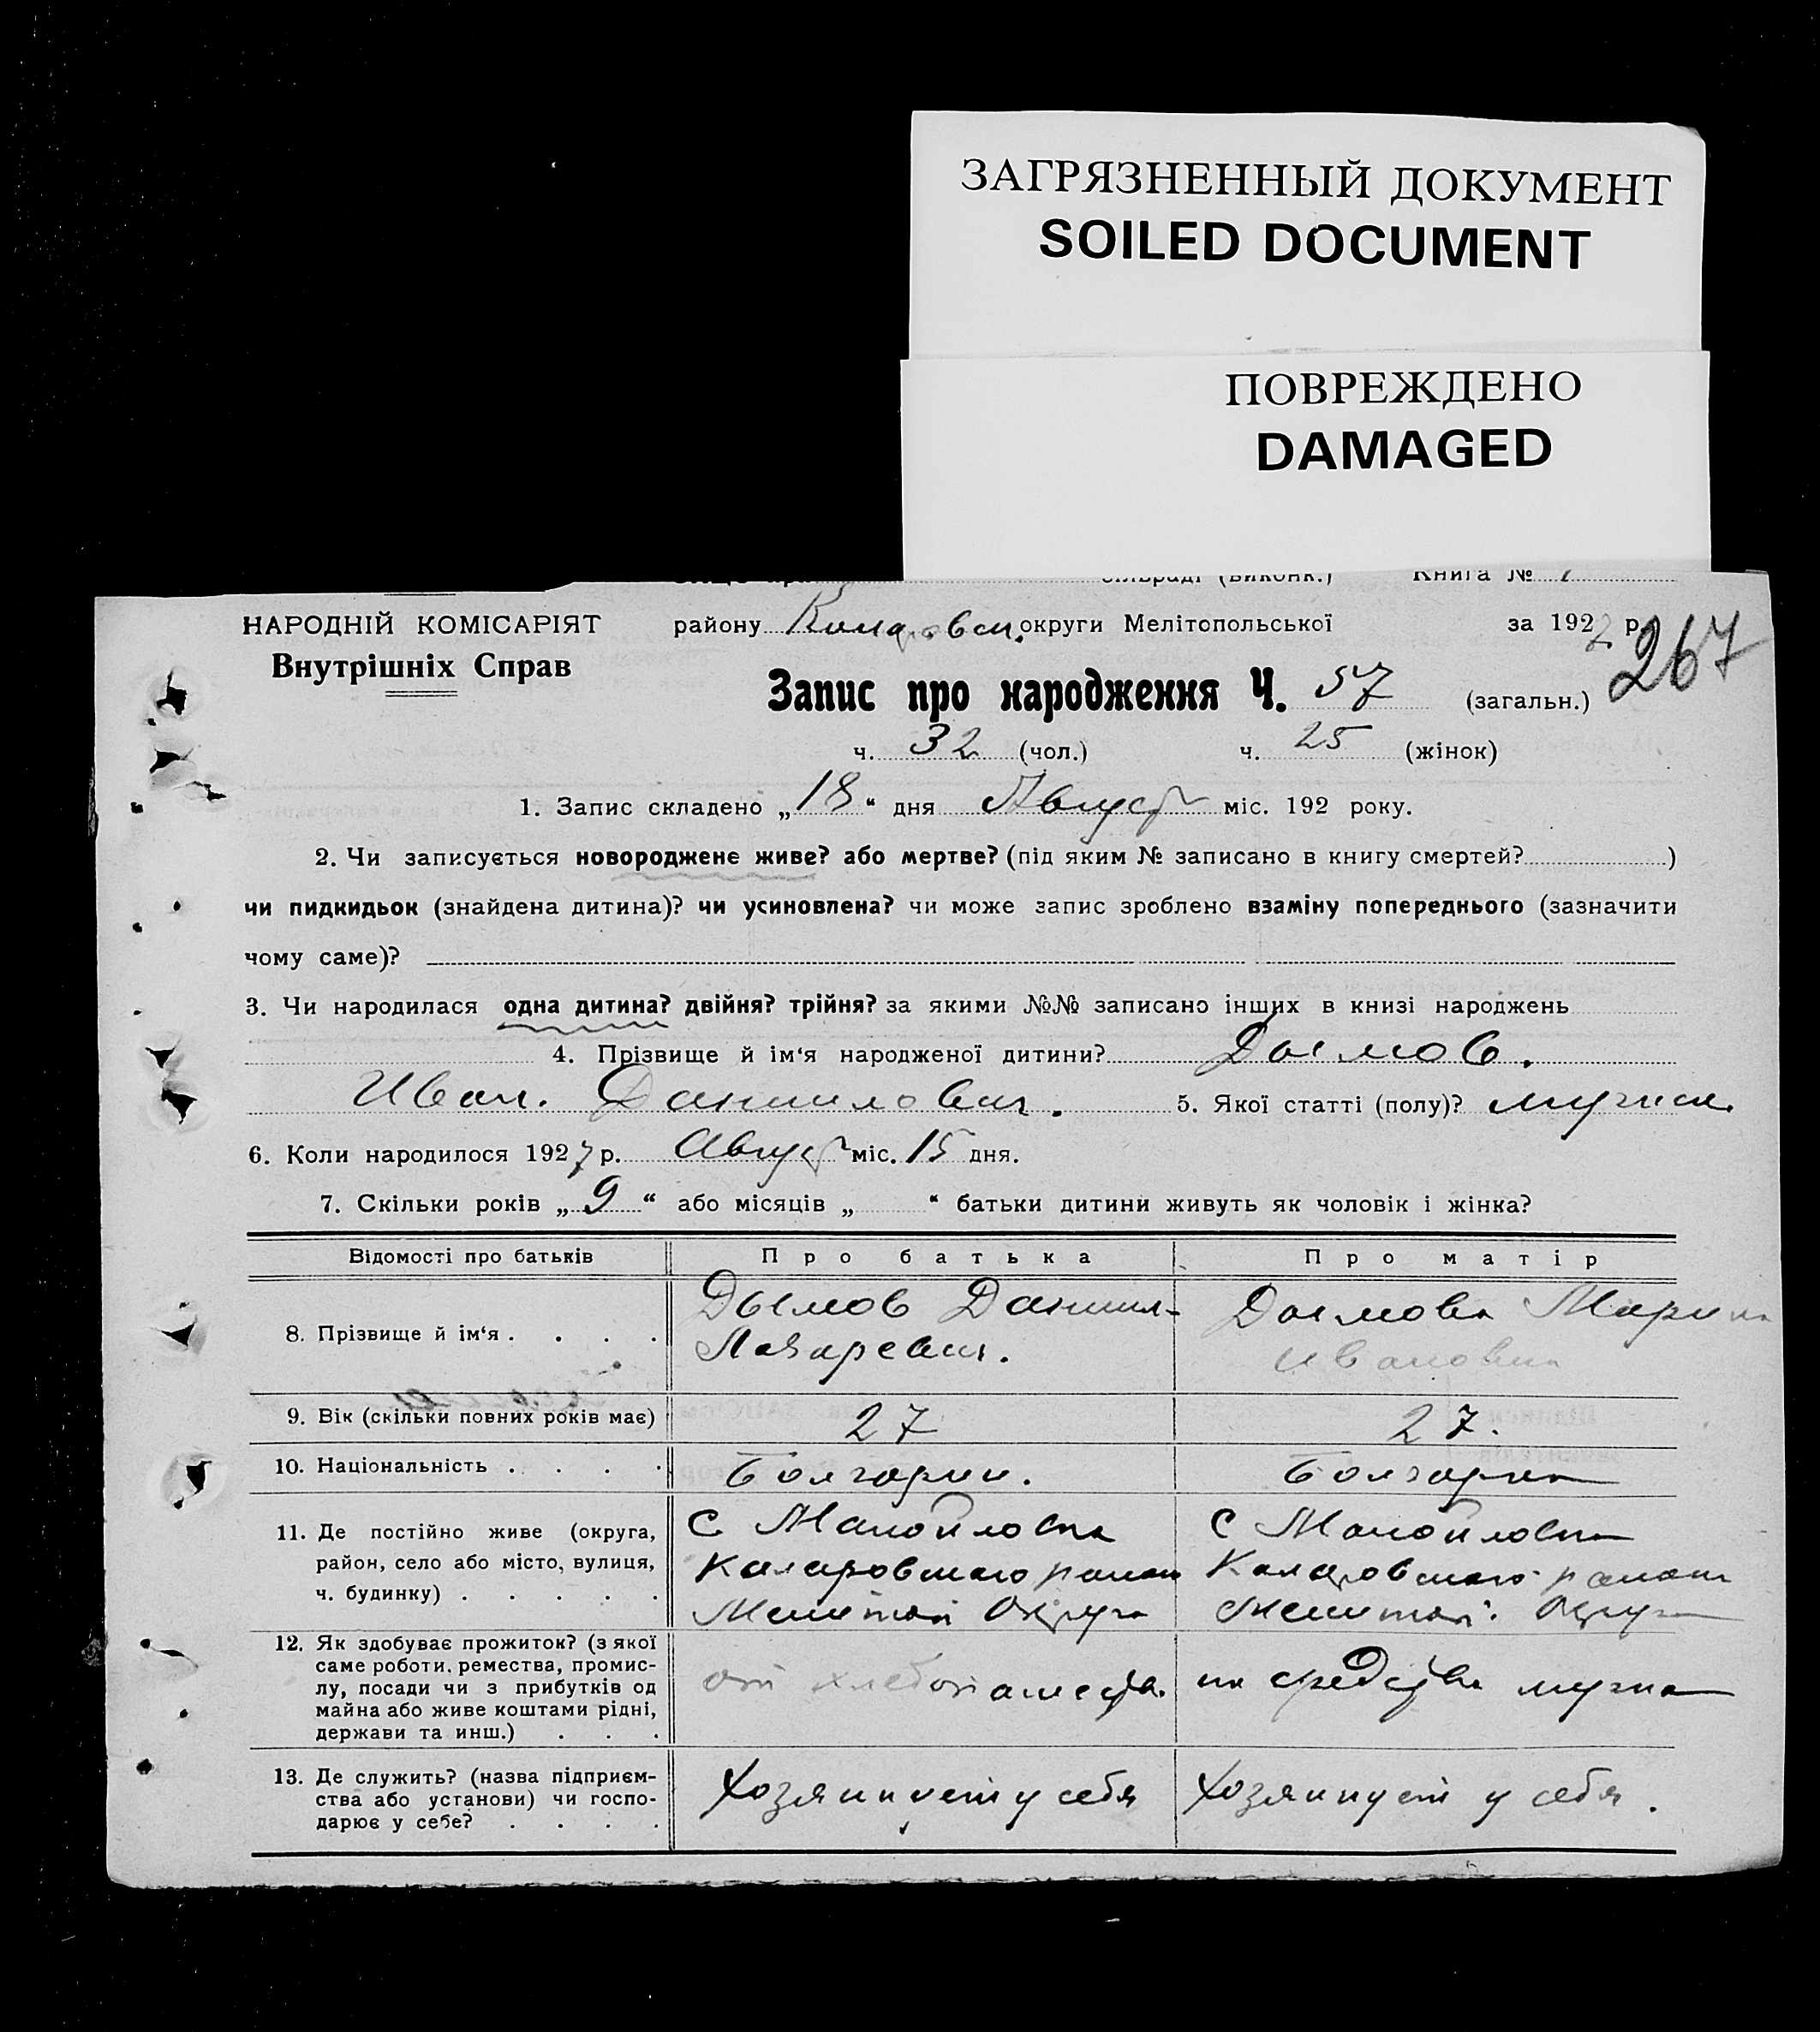 ЗАГРЯЗНЕННЫЙ ДОКУМЕНТ
SOILED DOCUMENT
ПОВРЕЖДЕНО
DAMAGED
сільраді (виконк.) Книга №
НАРОДНІЙ КОМІСАРІЯТ
Внутрішніх Справ
району Коларовск. округи Мелітопольської за 1927 р.
267
Запис про народження Ч. 57 (загальн.)
ч. 32 (чол.) ч. 25 (жінок)
1. Запис складено „18“ дня Август міс. 192 року.
2. Чи записується новороджене живе? або мертве? (під яким № записано в книгу смертей? )
чи пидкидьок (знайдена дитина)? чи усиновлена? чи може запис зроблено взаміну попереднього (зазначити
чому саме)?
3. Чи народилася одна дитина? двійня? трійня? за якими №№ записано інших в книзі народжень
4. Прізвище й ім‘я народженої дитини? Дымов.
Иван. Данилович. 5. Якої статті (полу)? мужск.
6. Коли народилося 1927 р. Август міс. 15 дня.
7. Скільки років „9“ або місяців „ “ батьки дитини живуть як чоловік і жінка?
Відомості про батьків Про батька Про матір
8. Прізвище й ім‘я . . . . Дымов Даниил Лазаревич. Дымова Мария Ивановна
9. Вік (скільки повних років має) 27 27.
10. Національність . . . . Болгарин. Болгарка
11. Де постійно живе (округа,
район, село або місто, вулиця,
ч. будинку) . . . . .
С Манойловка
Коларовского района
Мелитоп Округа
С Манойловка
Коларовского района
Мелитоп. Округа
12. Як здобуває прожиток? (з якої
саме роботи, ремества, промис-
лу, посади чи з прибутків од
майна або живе коштами рідні,
держави та инш.) . . .
от хлебопашества.
на средства мужа
13. Де служить? (назва підприєм-
ства або установи) чи госпо-
дарює у себе? . . . .
Хозяинует у себя
Хозяинует у себя.